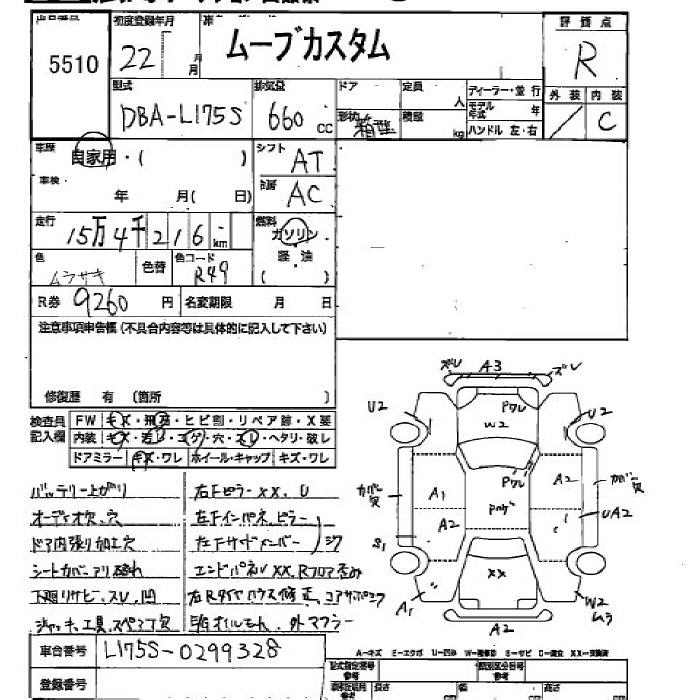 出品番号 初度登録年月
5510 22 年 月 ムーブカスタム
評価点
R
型式 排気量 ドア 定員 ディーラー・並行 外装 内装
DBA-L175S 660 cc 形状 箱型 人 積載 kg モデル年式 年 ハンドル 左・右 C
車歴 自家用・( ) シフト AT
車検・ 年 月( 日) 冷房 AC
走行 15万4千216 km 燃料 ガソリン
軽油
( )
色 ムラサキ 色替 色コード R49
R券 9260 円 名変期限 月 日
注意事項申告欄(不具合内容等は具体的に記入して下さい)
修復歴 有 (箇所 )
検査員記入欄
FW キズ・飛石・ヒビ割・リペア跡・X要
内装 キズ・汚レ・コゲ・穴・スレ・ヘタリ・破レ
ドアミラー キズ・ワレ ホイール・キャップ キズ・ワレ
バッテリー上がり 右Fピラー XX、U
オーディオ欠、穴 左Fインパネ、ピラー
ドア内張り加工穴 左Fサイドメンバー
シートカバーアリ 破れ エンドパネル XX、Rフロア歪み
下廻りサビ、スレ、凹
ジャッキ、工具、スペア欠 外マフラー
ズレ A3 ズレ
U2 Pワレ U2
W2
Pワレ
カバー欠 A1 A2 カバー欠
A2 Pハゲ UA2
S1
XX
A1 W2 ムラ
A2
A=キズ E=エクボ U=凹み W=補修跡 S=サビ C=腐食 XX=交換済
車台番号 L175S-0299328
登録番号
型式指定番号 類別区分番号
長さ 幅 高さ